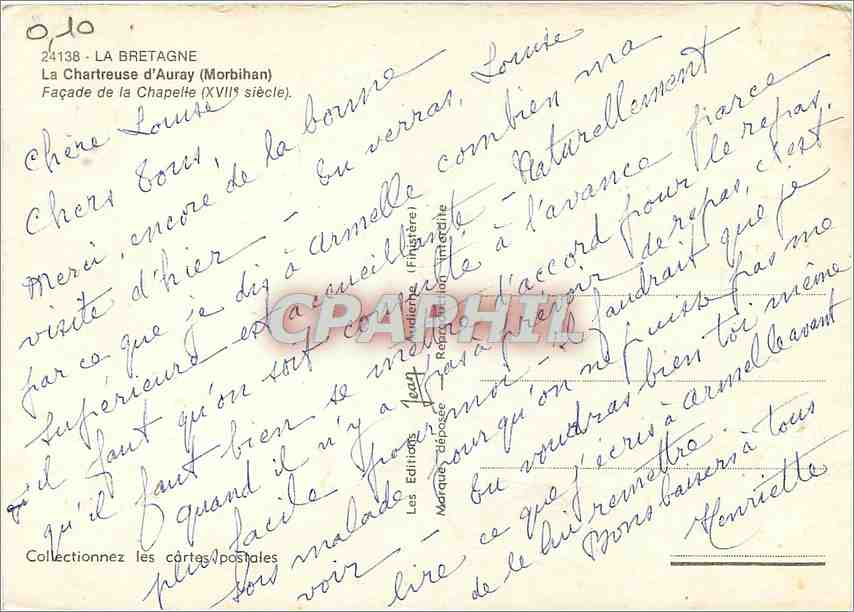 0,10
24138 - LA BRETAGNE
La Chartreuse d'Auray (Morbihan)
Façade de la Chapelle (XVIIe siècle).
Chère Louise
Chers Tous,
Merci, encore de la bonne
visite d'hier - tu verras, Louise
par ce que je dis à Armelle combien ma
Supérieure est accueillante - Naturellement
il faut qu'on soit consulté à l'avance parce
qu'il faut bien se mettre d'accord pour le repas.
quand il n'y a pas à prévoir de repas, c'est
plus facile pour moi - il faudrait que je
sois malade pour qu'on ne puisse pas me
voir - tu voudras bien toi même
lire ce que j'écris à Armelle avant
de le lui remettre.
Bons baisers à tous
Henriette
Les Editions Jean Audierne (Finistère)
Marque déposée Reproduction interdite
Collectionnez les cartes postales
CPAPHIL